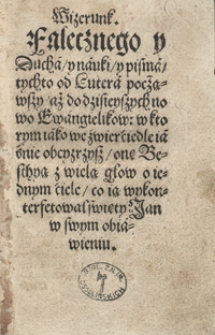 Wizerunk.
Falecznego y
Duchá / y náuki / y pismá /
tych to od Luterá począ-
wszy aż do dzisieyszych no
wo Ewángielikow: w kto
rym iáko we źwierciedle iá
śnie obeyzrzysz / one Be-
sthyą z wielą głow o ie-
dnym ciele / co ią wykon-
terfetował święty Jan
w swym obiá-
wieniu.